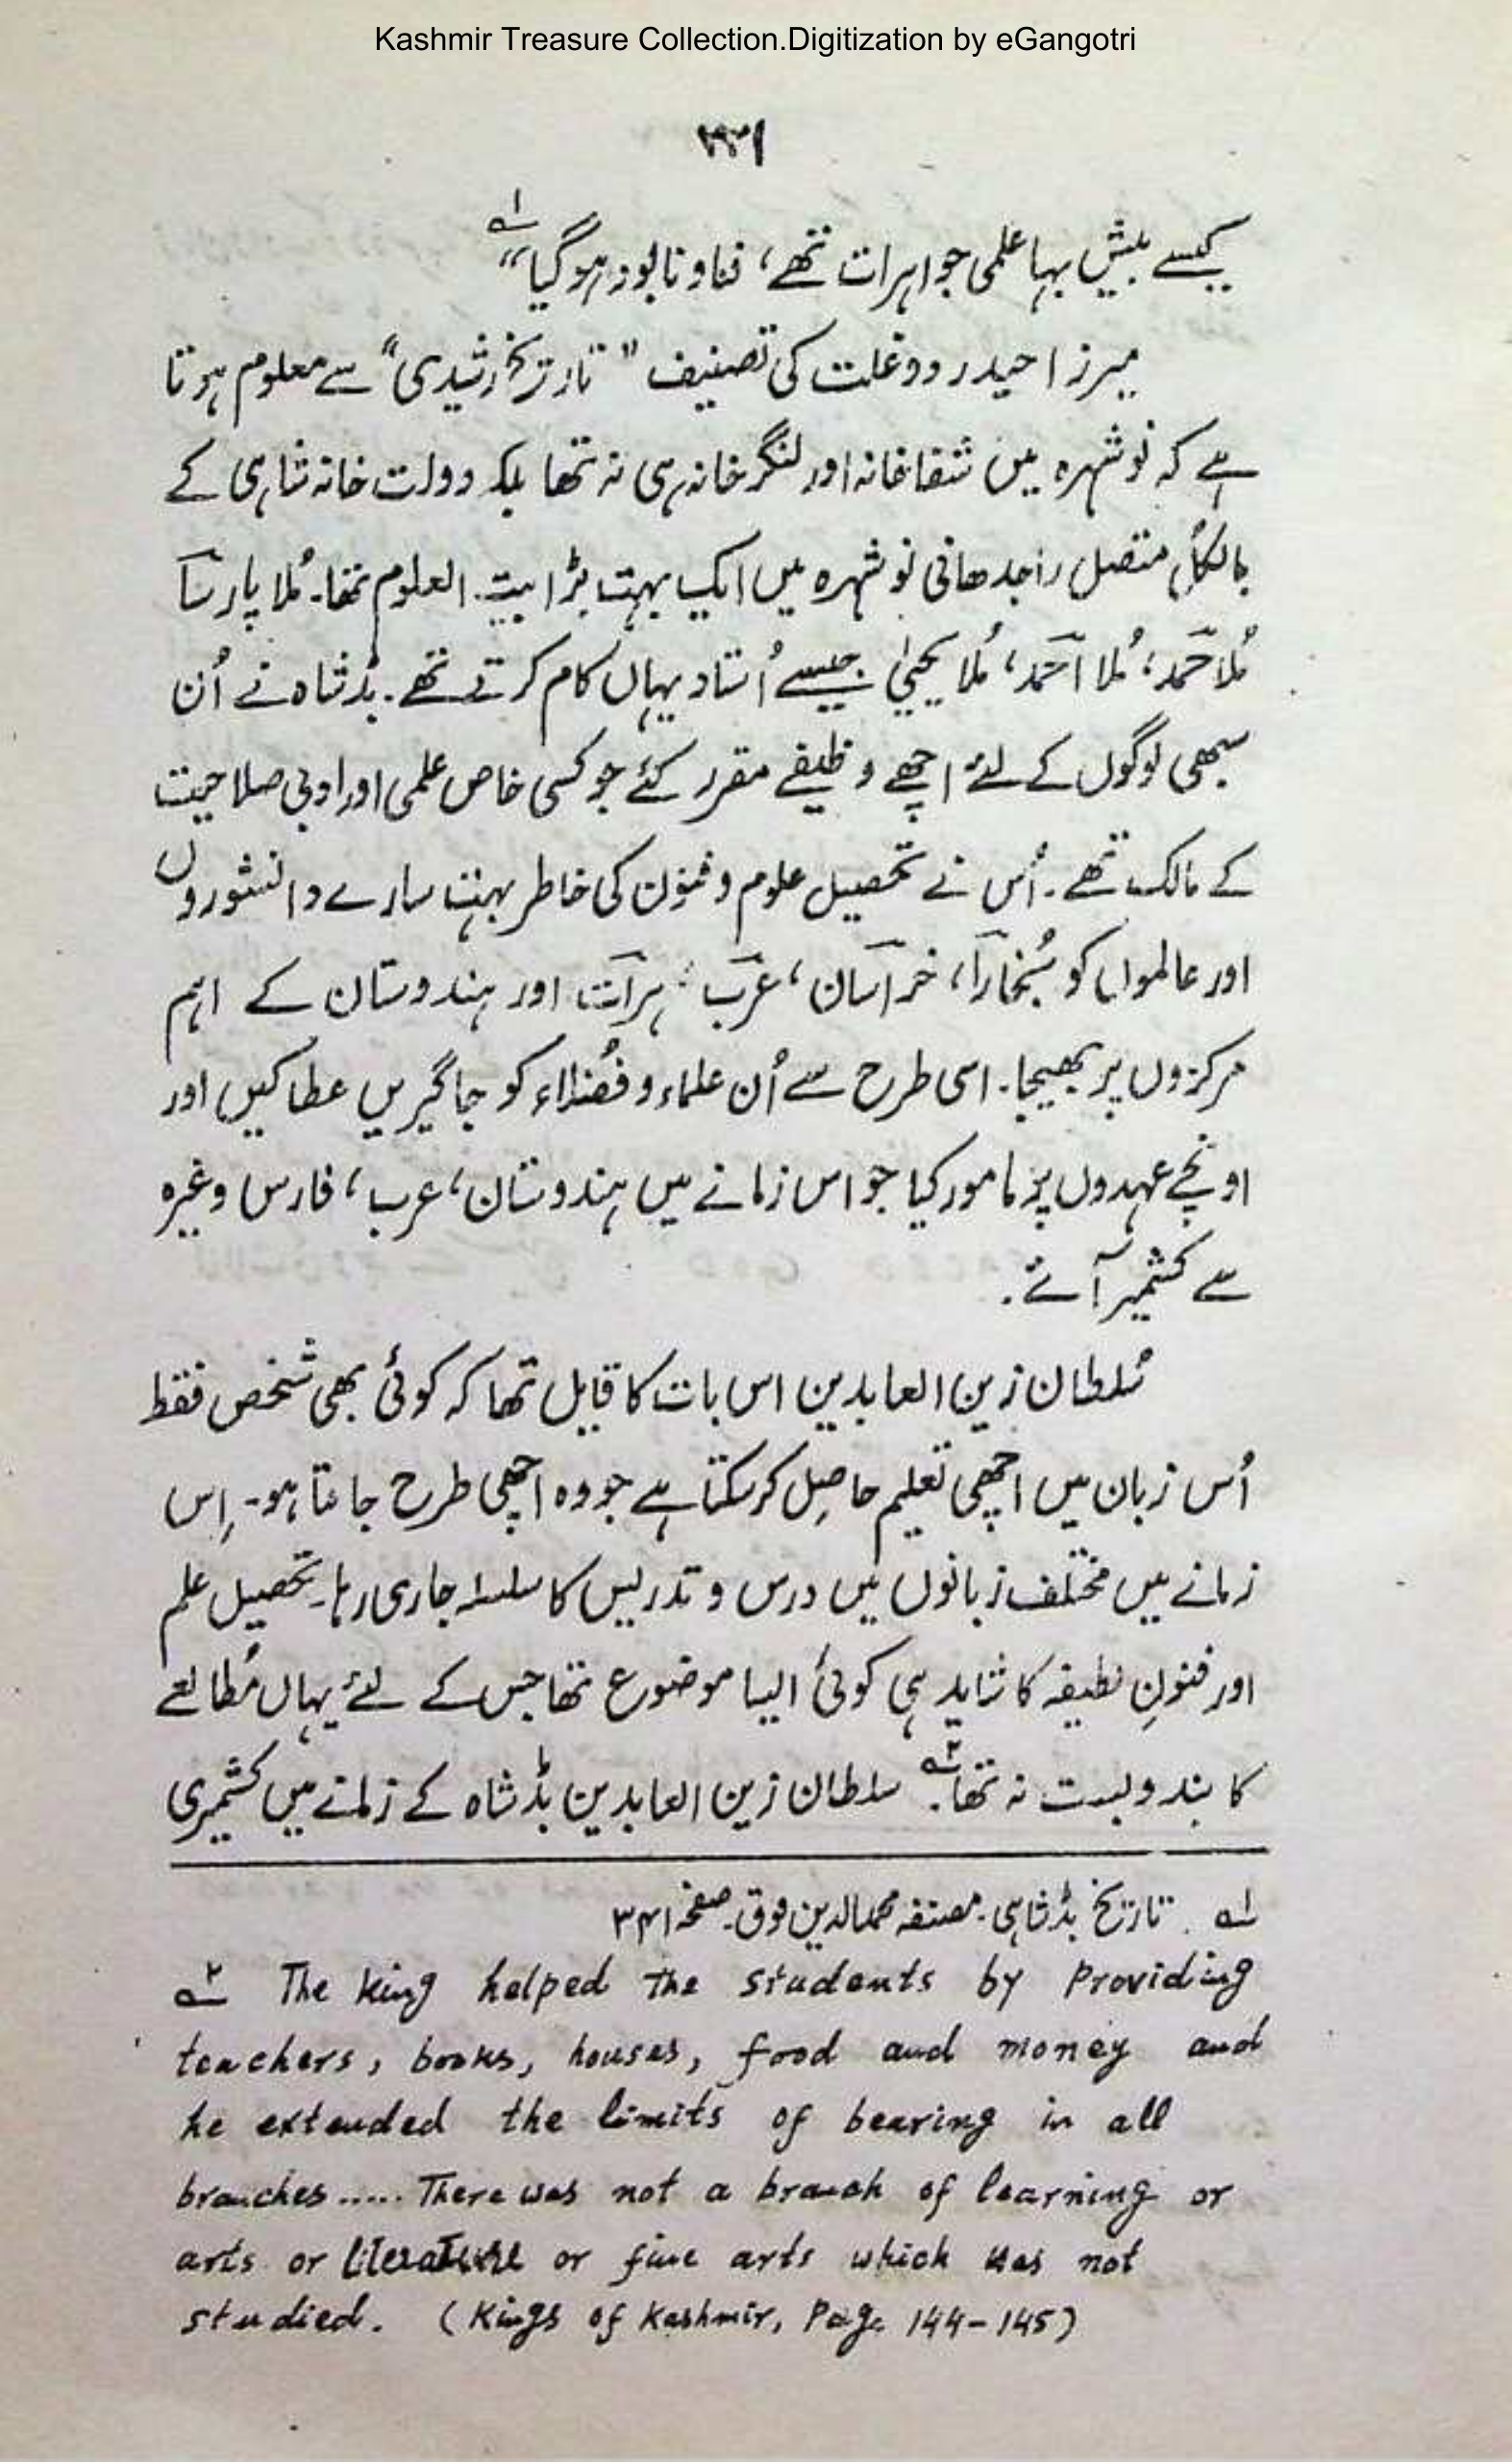 Kashmir Treasure Collection.Digitization by eGangotri
۲۳۱
کیسے بیش بہا علمی جواہرات تھے، فنا و نابود ہوگیا“ ۱ے
میرزا حیدر دوغلت کی تصنیف ”تاریخ رشیدی“ سے معلوم ہوتا
ہے کہ نوشہرہ میں شفاخانہ اور لنگر خانہ ہی نہ تھا بلکہ دولت خانہ شاہی کے
بالکل متصل راجدھانی نوشہرہ میں ایک بہت بڑا بیت العلوم تھا۔ مُلا پارسا
مُلا حمد، مُلا احمد، مُلا یحییٰ جیسے اُستاد یہاں کام کرتے تھے۔ بڈشاہ نے اُن
سبھی لوگوں کے لئے اچھے وظیفے مقرر کئے جو کسی خاص علمی اور ادبی صلاحیت
کے مالک تھے۔ اُس نے تحصیل علوم و فنون کی خاطر بہت سارے دانشوروں
اور عالموں کو بُخارا، خراسان، عرب، ہرات اور ہندوستان کے اہم
مرکزوں پر بھیجا۔ اسی طرح سے اُن علماء و فُضلاء کو جاگیریں عطا کیں اور
اونچے عہدوں پر مامور کیا جو اس زمانے میں ہندوستان، عرب، فارس وغیرہ
سے کشمیر آئے۔
سُلطان زین العابدین اس بات کا قایل تھا کہ کوئی بھی شخص فقط
اُس زبان میں اچھی تعلیم حاصِل کرسکتا ہے جو وہ اچھی طرح جانتا ہو۔ اِس
زمانے میں مختلف زبانوں میں درس و تدریس کا سلسلہ جاری رہا۔ تحصیل علم
اور فنونِ لطیفہ کا شاید ہی کوئی ایسا موضوع تھا جس کے لئے یہاں مُطالعے
کا بندوبست نہ تھا۔ ۲ے سلطان زین العابدین بڈشاہ کے زمانے میں کشمیری
۱ے تاریخ بڈشاہی۔ مصنفہ محمد الدین فوق۔ صفحہ ۳۴۱
۲ے The king helped The students by Providing
teachers, books, houses, food and money and
he extended the limits of bearing in all
branches ..... There was not a branch of learning or
arts or literature or fine arts which was not
studied. (Kings of Kashmir, Page 144-145)